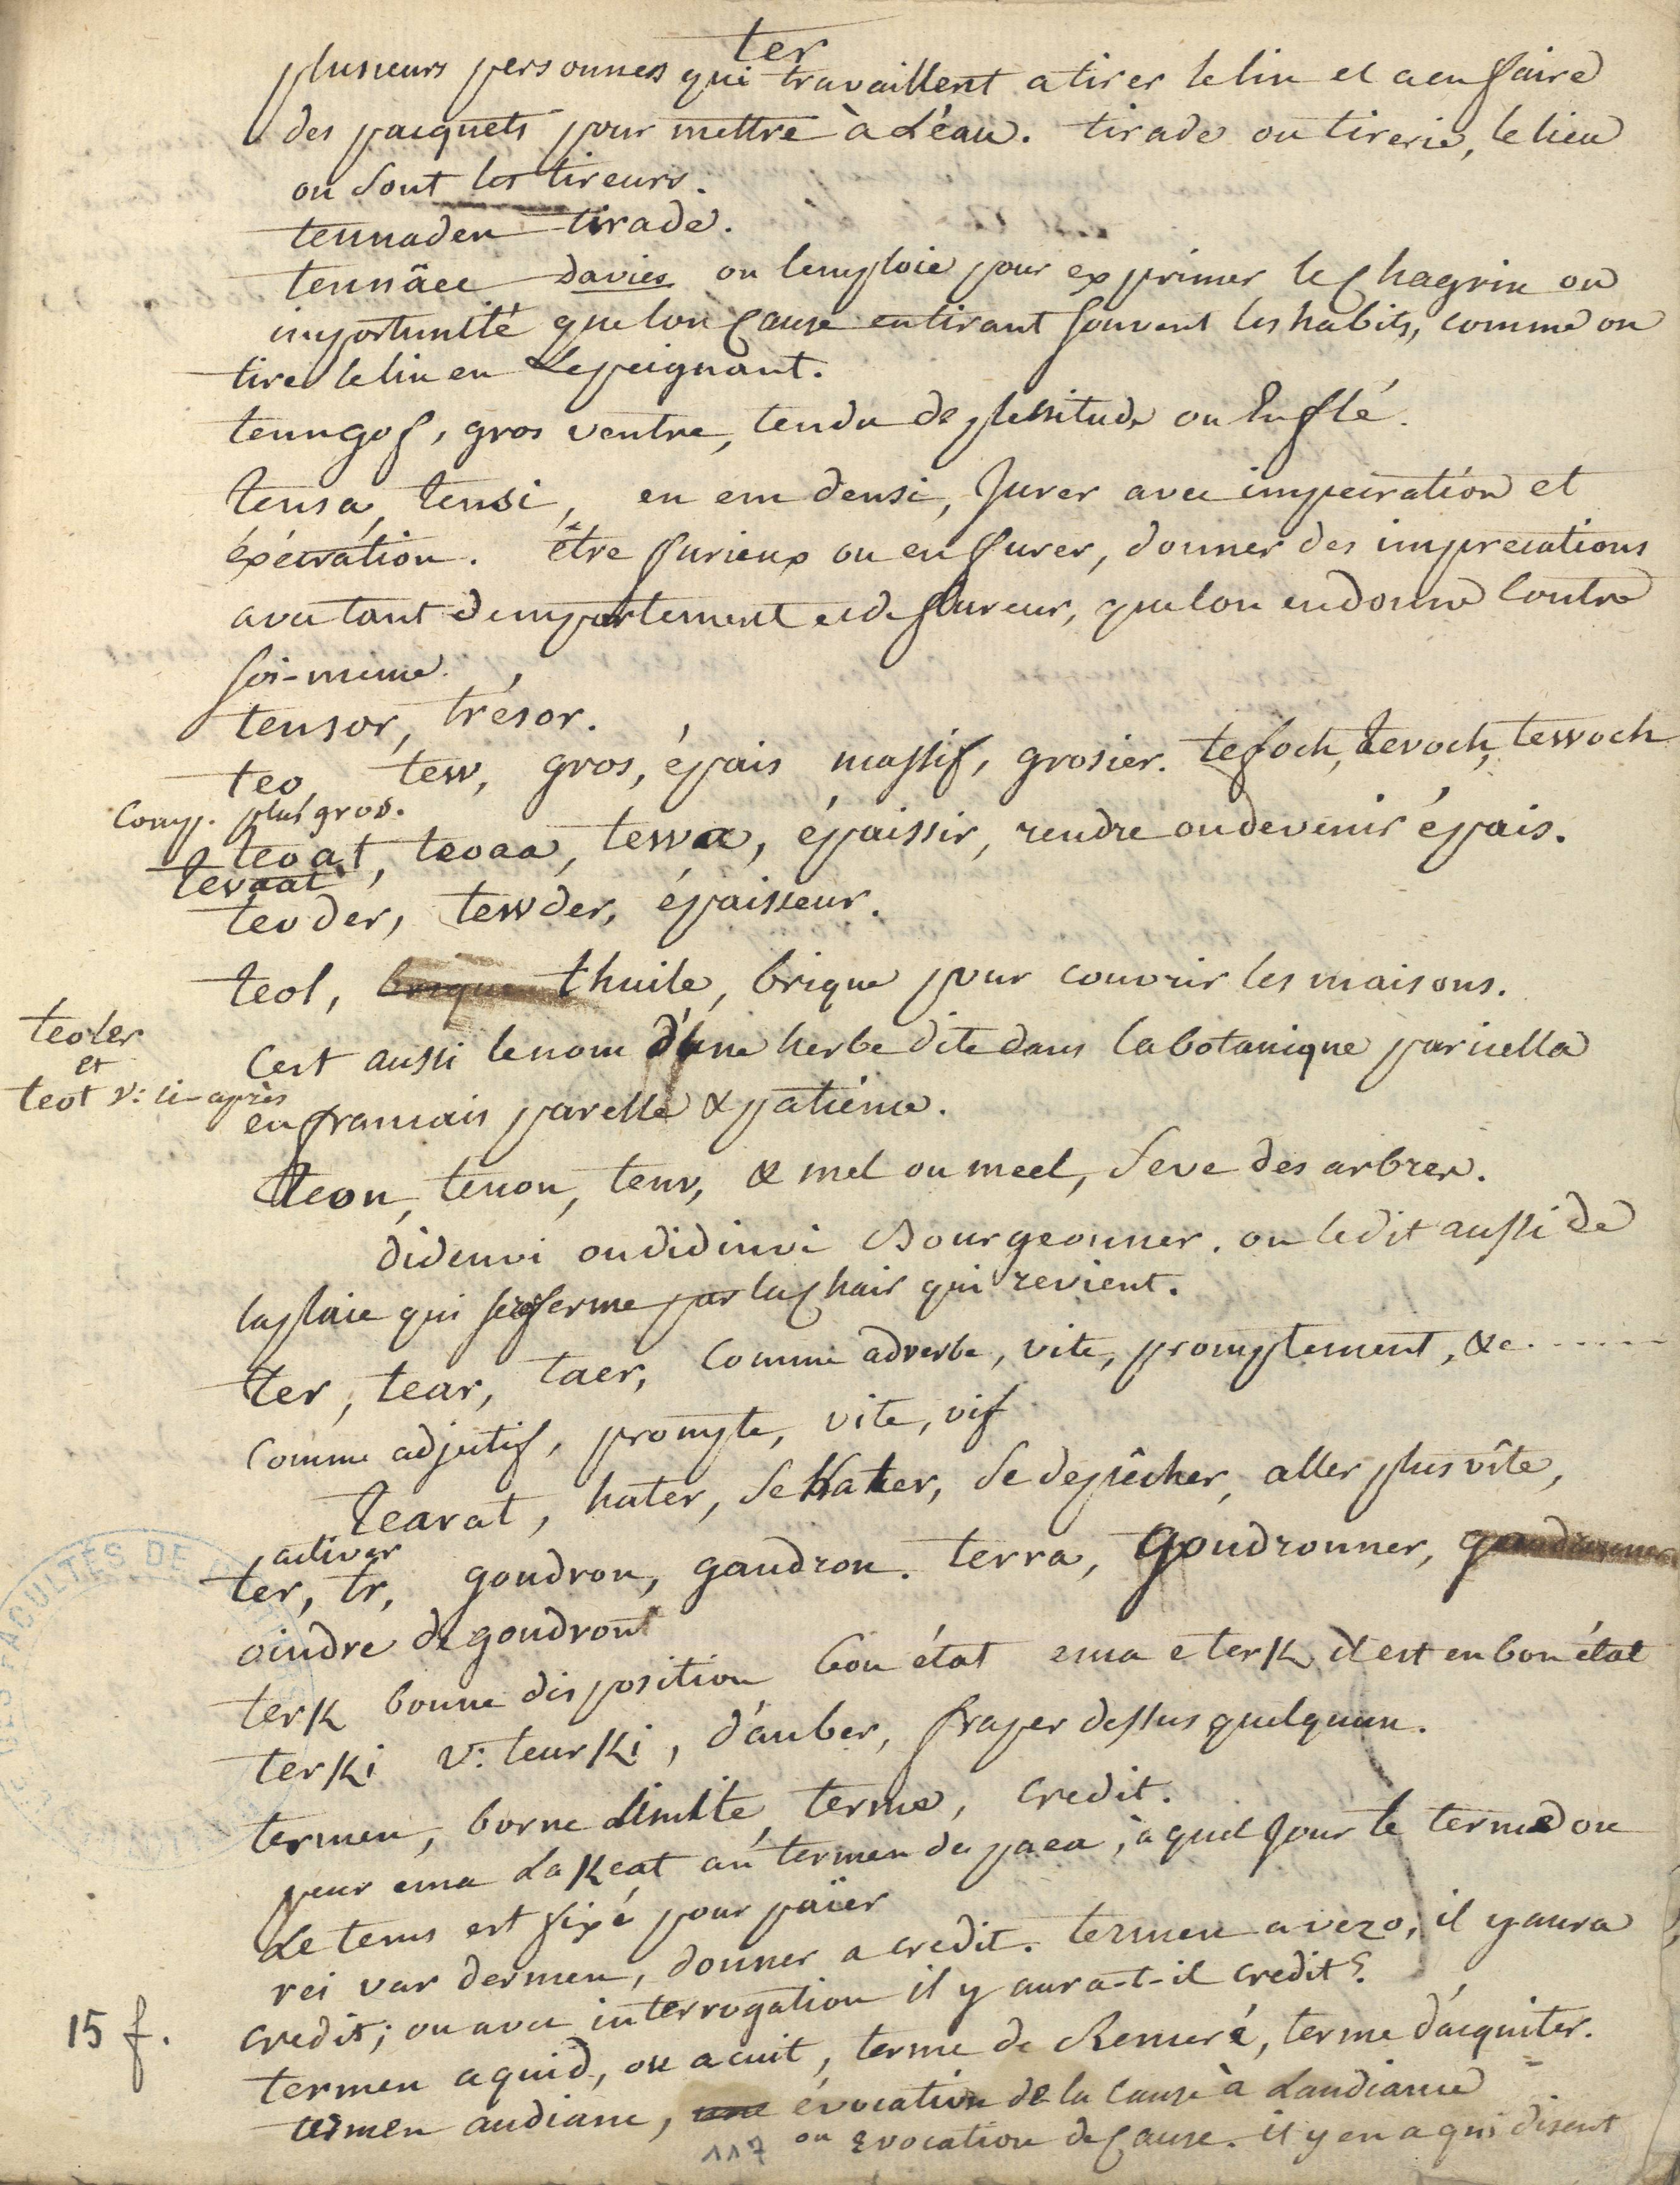 ter
plusieurs personnes qui travaillent a tirer le lin et a en faire
des pacquets pour mettre à L'éau. tirade ou tirerie, le lieu
ou sont les tireurs.
tennaden tirade.
tennäec Davies on lemploie pour exprimer le chagrin ou
importunité que lon cause en tirant souvent les habits, comme on
tire le lin en Le peignant.
tenngof, gros ventre, tendu de plenitude ou Enflé.
tensa, tensi, en em densi, Jurer avec impecration et
éxécration. être furieux ou en furer, donner des imprecations
avec tant d'emportement et de fureur, que lon en donne Contre
soi-meme.
tensor, trésor.
teo, tew, gros, épais, massif, grosier. tefoch, tevoch, tewoch
Comp. plus gros.
teoat, teoaa, tewa, épaissir, rendre ou devenir épais.
tevaat
teoder, tewder, épaisseur.
teol, brique thuile, brique pour couvrir les maisons.
teoler
et
teot v: ci-après
Cest aussi le nom d'une herbe dite dans la botanique paricella
en francais parelle & patience.
teon, tenon, tenv, & mel ou meel, Seve des arbres.
didenvi ou didinvi Bourgeonner. on le dit aussi de
la plaie qui se referme par la chair qui revient.
ter, tear, taer, Comme adverbe, vite, promptement, &c......
Comme adjectif, prompte, vite, vif
tearat, hater, se Hater, se depêcher, aller plus vîte,
activer
ter, tr, goudron, gaudron. terra, Goudronner, gaudronner
oindre de goudront
terk bonne disposition bon état ema e terk, il est en bon état
terki v: teurki, d'auber, fraper dessus quelquun.
termen, borne Limite, terme, credit.
peur ema Lakeat an termen da paea, à quel Jour le terme ou
Le tems est fixé pour païer
rei var dermen, donner a credit. termen a vezo, il y aura
credit; ou avec interrogation il y aura-t-il credit?
15 f.
termen aquid, ou acuit, terme de Remeré, terme d'acquiter.
termen audianc, une évocation de la cause à Laudiance
117 ou Evocation de Cause. il y en a qui disent